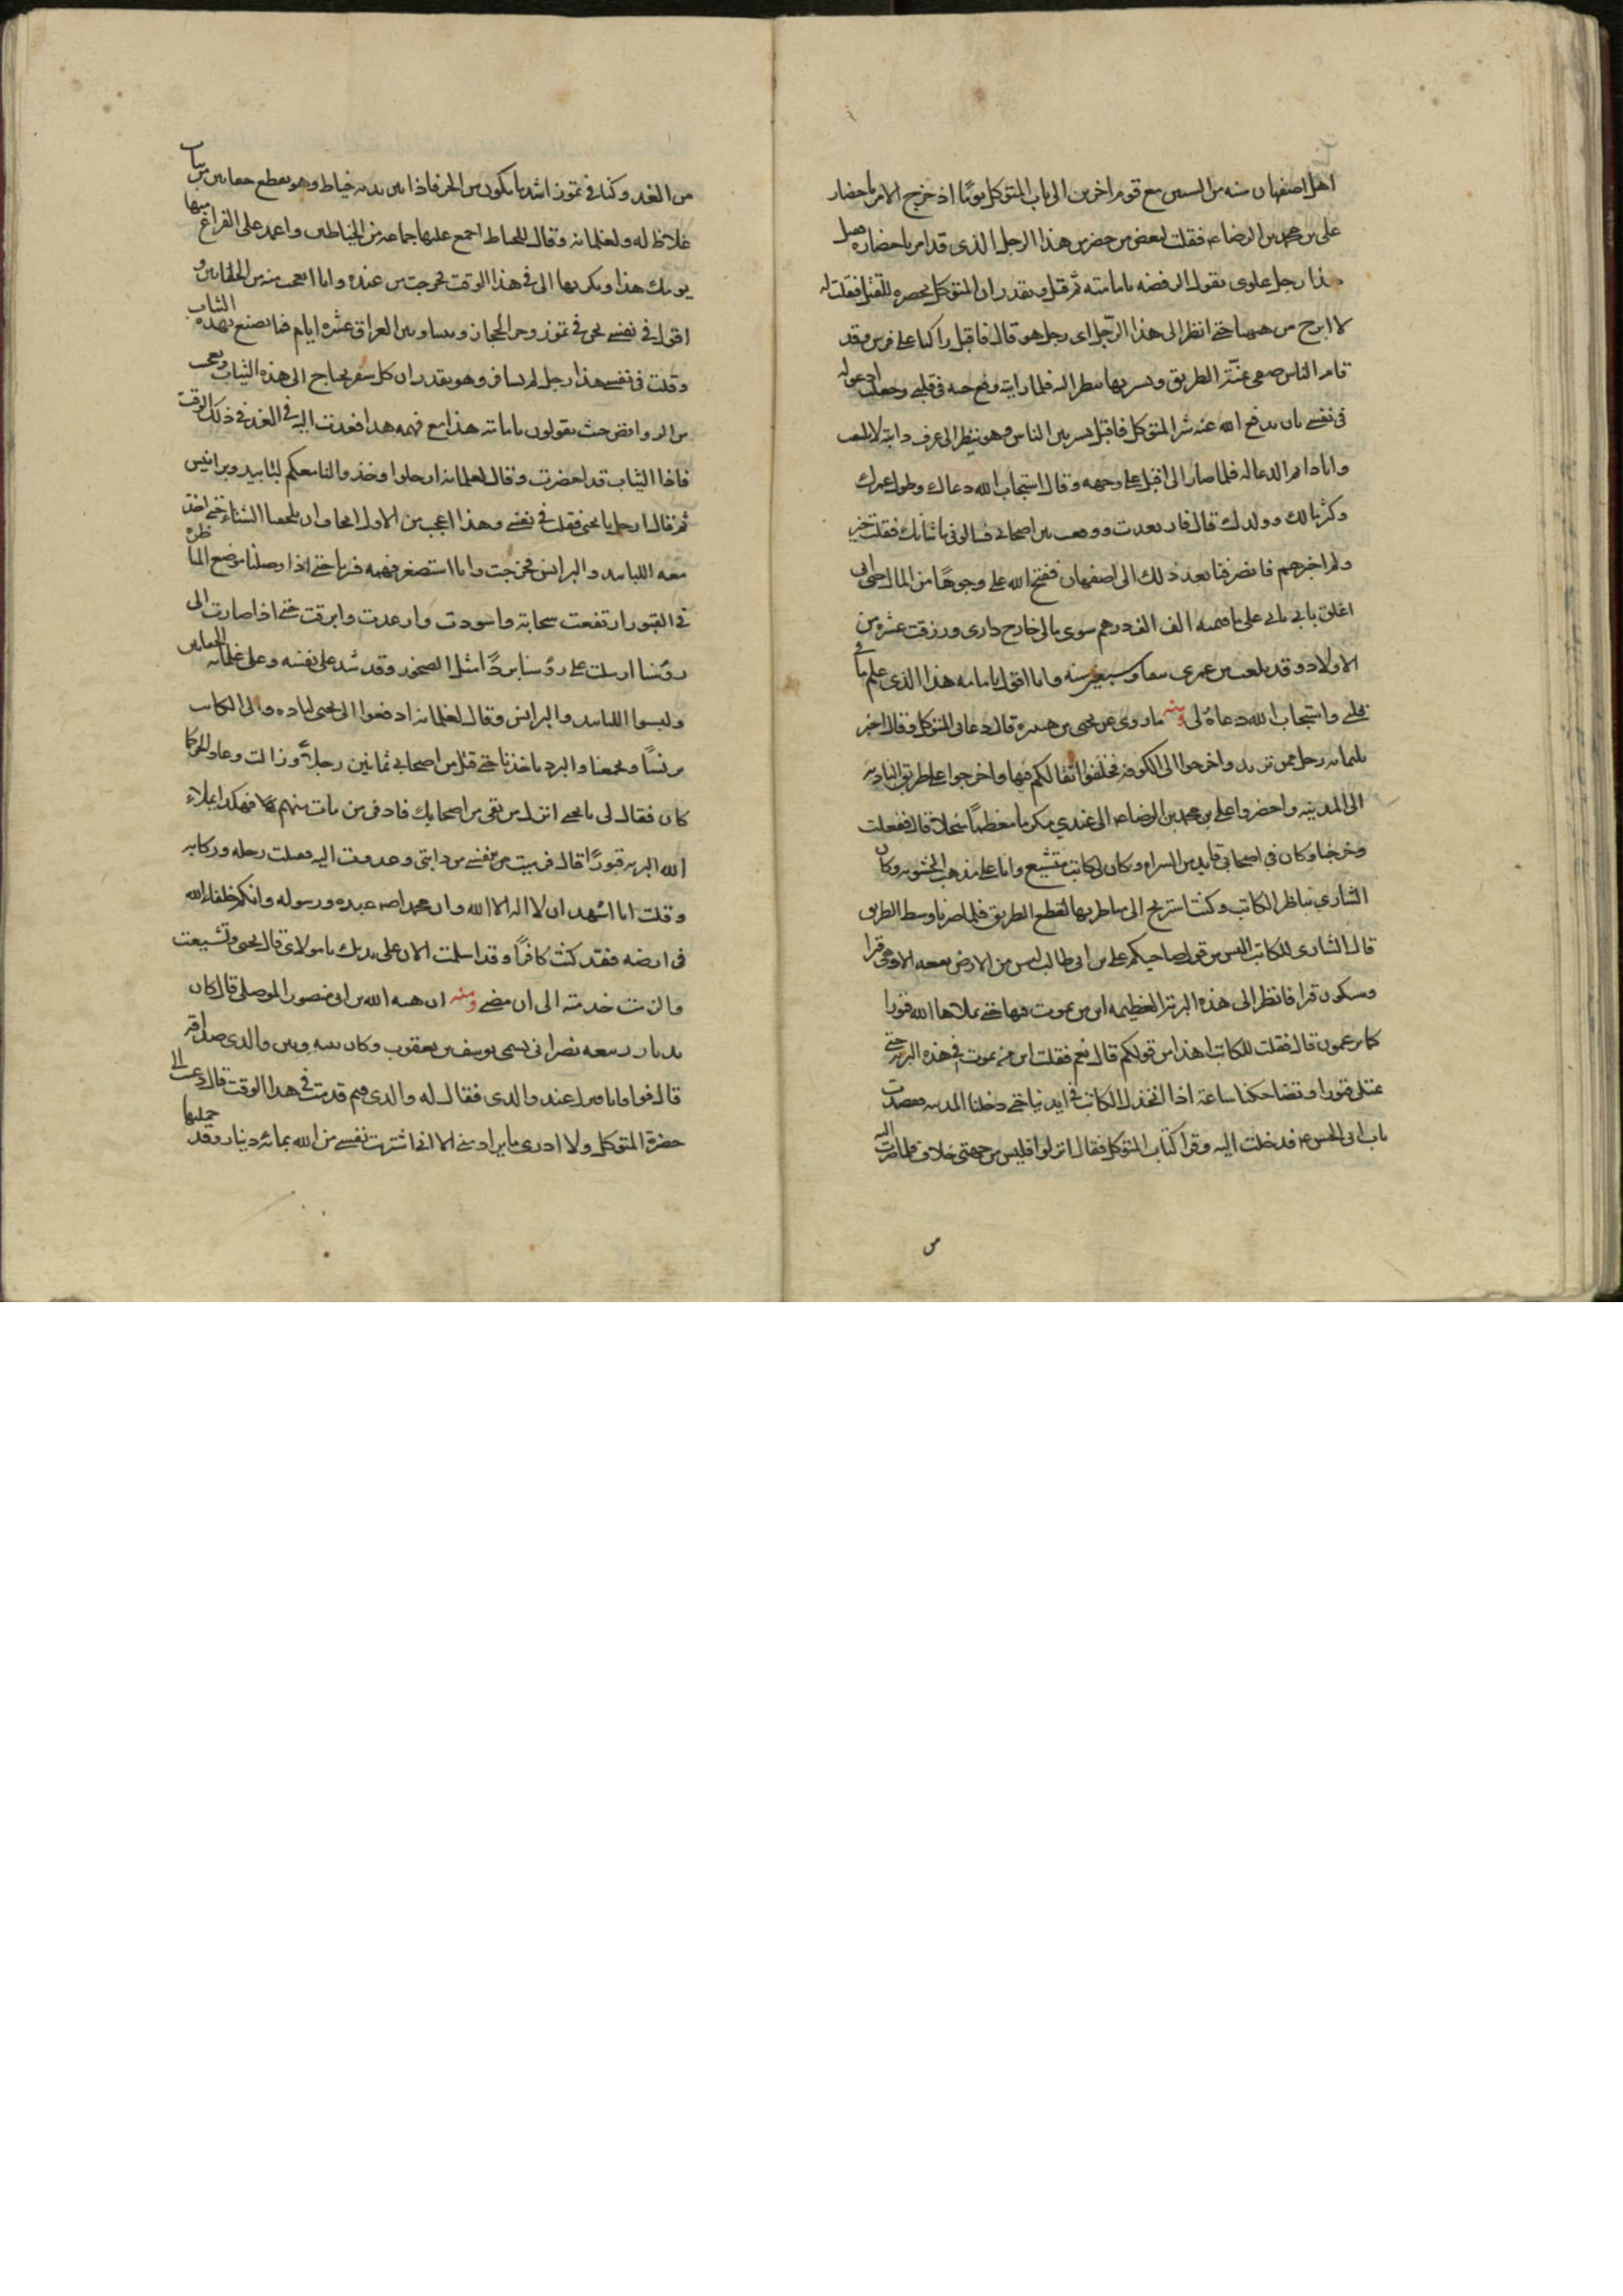 اهل اصفهان سنه من السنين مع قوم اخرين الى باب المتوكل يوما اذ خرج الامر باحضار
على بن محمد بن الرضا ع فقلت لبعض من حضر من هذا الرجل الذى قد امر باحضاره فقيل
هذا رجل علوى يقول الرفضه بامامته ثم قيل ويقدر ان المتوكل يحضره للقتل فقلت له
لا ابرح من ههنا حتى انظر الى هذا الرّجل اى رجل هو قال فاقبل راكبا على فرس وقد
قام الناس يمنة الطريق ويسرتها ينظر اليه فلما رايته وقع حبه فى قلبى وجعلت ادعو له
فى نفسى بان يدفع الله عنه شر المتوكل فاقبل يسير بين الناس وهو ينظر الى عرف دابته لا يلتفت
وانا دايم الدعا له فلما صار الى اقبل على وجهه وقال استجاب الله دعاك وطول عمرك
وكثر مالك وولدك قال فارتعدت ووقعت بين اصحابى فسالونى ما شانك فقلت خير
ولم اخبرهم فانصرفنا بعد ذلك الى اصفهان ففتح الله على وجوها من المال حتى انى
اغلق بابى على ما قيمته الف الف درهم سوى مالى خارج دارى ورزقت عشره من
الاولاد وقد بلغت من عمرى نيفا وسبعين سنه وانا اقول بامامه هذا الذى علم ما فى
قلبى واستجاب الله دعاه لى ومنه ما روى عن يحيى بن هبيره قال دعانى المتوكل وقال اختر
ثلثمايه رجل ممن تريد واخرجوا الى الكوفه فخلفوا اثقالكم فيها واخرجوا على طريق الباديه
الى المدينه واحضروا على بن محمد بن الرضا ع الى عندي مكرما معظما مبجلا قال ففعلت
وخرجنا وكان فى اصحابى قايد من الشراه وكان لى كاتب متشيع وانا على مذهب الحشويه وكان
الشارى يناظر الكاتب وكنت استريح الى مناظرتهما لقطع الطريق فلما صرنا وسط الطريق
قال الشارى للكاتب اليس من قول صاحبكم على بن ابى طالب ليس من الارض بقعه الا وهى قبرا
وسيكون قبرا فانظر الى هذه البريه العظيمه اين من يموت فيها حتى يملاها الله قبورا
كما تزعمون قال فقلت للكاتب اهذا من قولكم قال نعم فقلت اين من يموت فى هذه البريه حتى
تمتلى قبورا وتضاحكنا ساعة اذ انخذل الكاتب فى ايدينا حتى دخلنا المدينه فقصدت
باب ابى الحسن ع فدخلت اليه وقرا كتاب المتوكل فقال انزلوا فليس من جهتى خلاف فلما صرت اليه
من الغد وكنا فى تموز اشد ما يكون من الحر فاذا بين يديه خياط وهو يقطع خفاتين من ثياب
غلاظ له ولغلمانه وقال للخياط اجمع عليها جماعه من الخياطين واعمد على الفراغ منها
يومك هذا وبكر بها الى فى هذا الوقت فخرجت من عنده وانا اتعجب منه من الخفاتين و
اقول فى نفسى نحن فى تموز وحر الحجاز وبيننا وبين العراق عشره ايام فما يصنع بهذه الثياب
وقلت فى نفسى هذا رجل لم يسافر وهو يقدر ان كل سفر يحتاج الى هذه الثياب وتعجبت
من الروافض حيث يقولون بامامة هذا مع فهمه هذا فعدت اليه فى الغد فى ذلك الوقت
فاذا الثياب قد احضرت وقال لغلمانه ارحلوا وخذوا لنا معكم لبابيد وبرانيس
ثم قال ارحل يا يحيى فقلت فى نفسى وهذا اعجب من الاول اتخاف ان يلحقنا الشتاء حتى اخذ
معه اللبابيد والبرانس فخرجت وانا استصغر فهمه فسرنا حتى اذا وصلنا موضع المناظره
فى القبور ارتفعت سحابة واسودت وارعدت وابرقت حتى اذا صارت الى
رؤسنا ارسلت على رؤسنا بردًا مثل الصخور وقد شد على نفسه وعلى غلمانه الخفاتين
ولبسوا اللبابيد والبرانس وقال لغلمانه ادفعوا الى يحيى لباده والى الكاتب
برنسًا وتجمعنا والبرد ياخذنا حتى قتل من اصحابى ثمانين رجلًا وزالت وعاد الحر كما
كان فقال لى يا يحيى انزل من بقى من اصحابك فادفن من مات منهم فهكذا يملاء
الله البريه قبورًا قال فرميت من نفسى من دابتى وعدوت اليه فقبلت رجله وركابه
وقلت انا اشهد ان لا اله الا الله وان محمدا ص عبده ورسوله وانكم خلفاء الله
فى ارضه فقد كنت كافرًا وقد اسلمت الان على يديك يا مولاى قال يحيى وتشيعت
والزمت خدمته الى ان مضى ومنه ان هبه الله بن ابى منصور الموصلى قال كان
بديار ربيعه نصرانى يسمى يوسف بن يعقوب وكان بينه وبين والدى صداقه
قال فوافانا فنزل عند والدى فقال له والدى فيم قدمت فى هذا الوقت قال دعيت الى
حضرة المتوكل ولا ادرى ما يراد منى الا انى اشتريت نفسى من الله بمائه دينار وقد حملتها